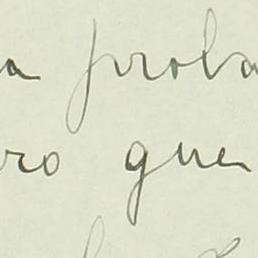 a proba
ro que